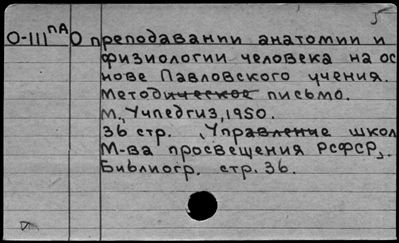 О-III ПА О преподавании анатомии и
физиологии человека на ос
нове Павловского учения.
Методическое письмо.
М., Учпедгиз, 1950.
36 стр. /Управление школ
М-ва просвещения РСФСР/.
Библиогр. стр. 36.